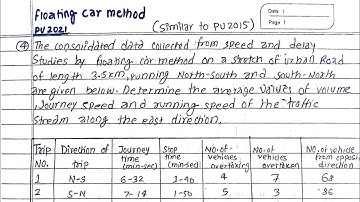 Floating car method
PU 2021
(Similar to PU2015)
Date :
Page :
(4) The consolidated data collected from speed and delay
Studies by floating car method on a stretch of urban Road
of length 3.5km, running North-South and south-North
are given below. Determine the average values of volume
, Journey speed and running speed of the traffic
stream along the east direction.
Trip NO. | Direction of trip | Journey time (min-sec) | Stop time (min-sec) | No. of vehicles overtaking | No. of vehicles overtaken | No. of vehicle from opposi direction
1 | N-S | 6-32 | 1-40 | 4 | 7 | 68
2 | S-N | 7-14 | 1-50 | 5 | 3 | 86